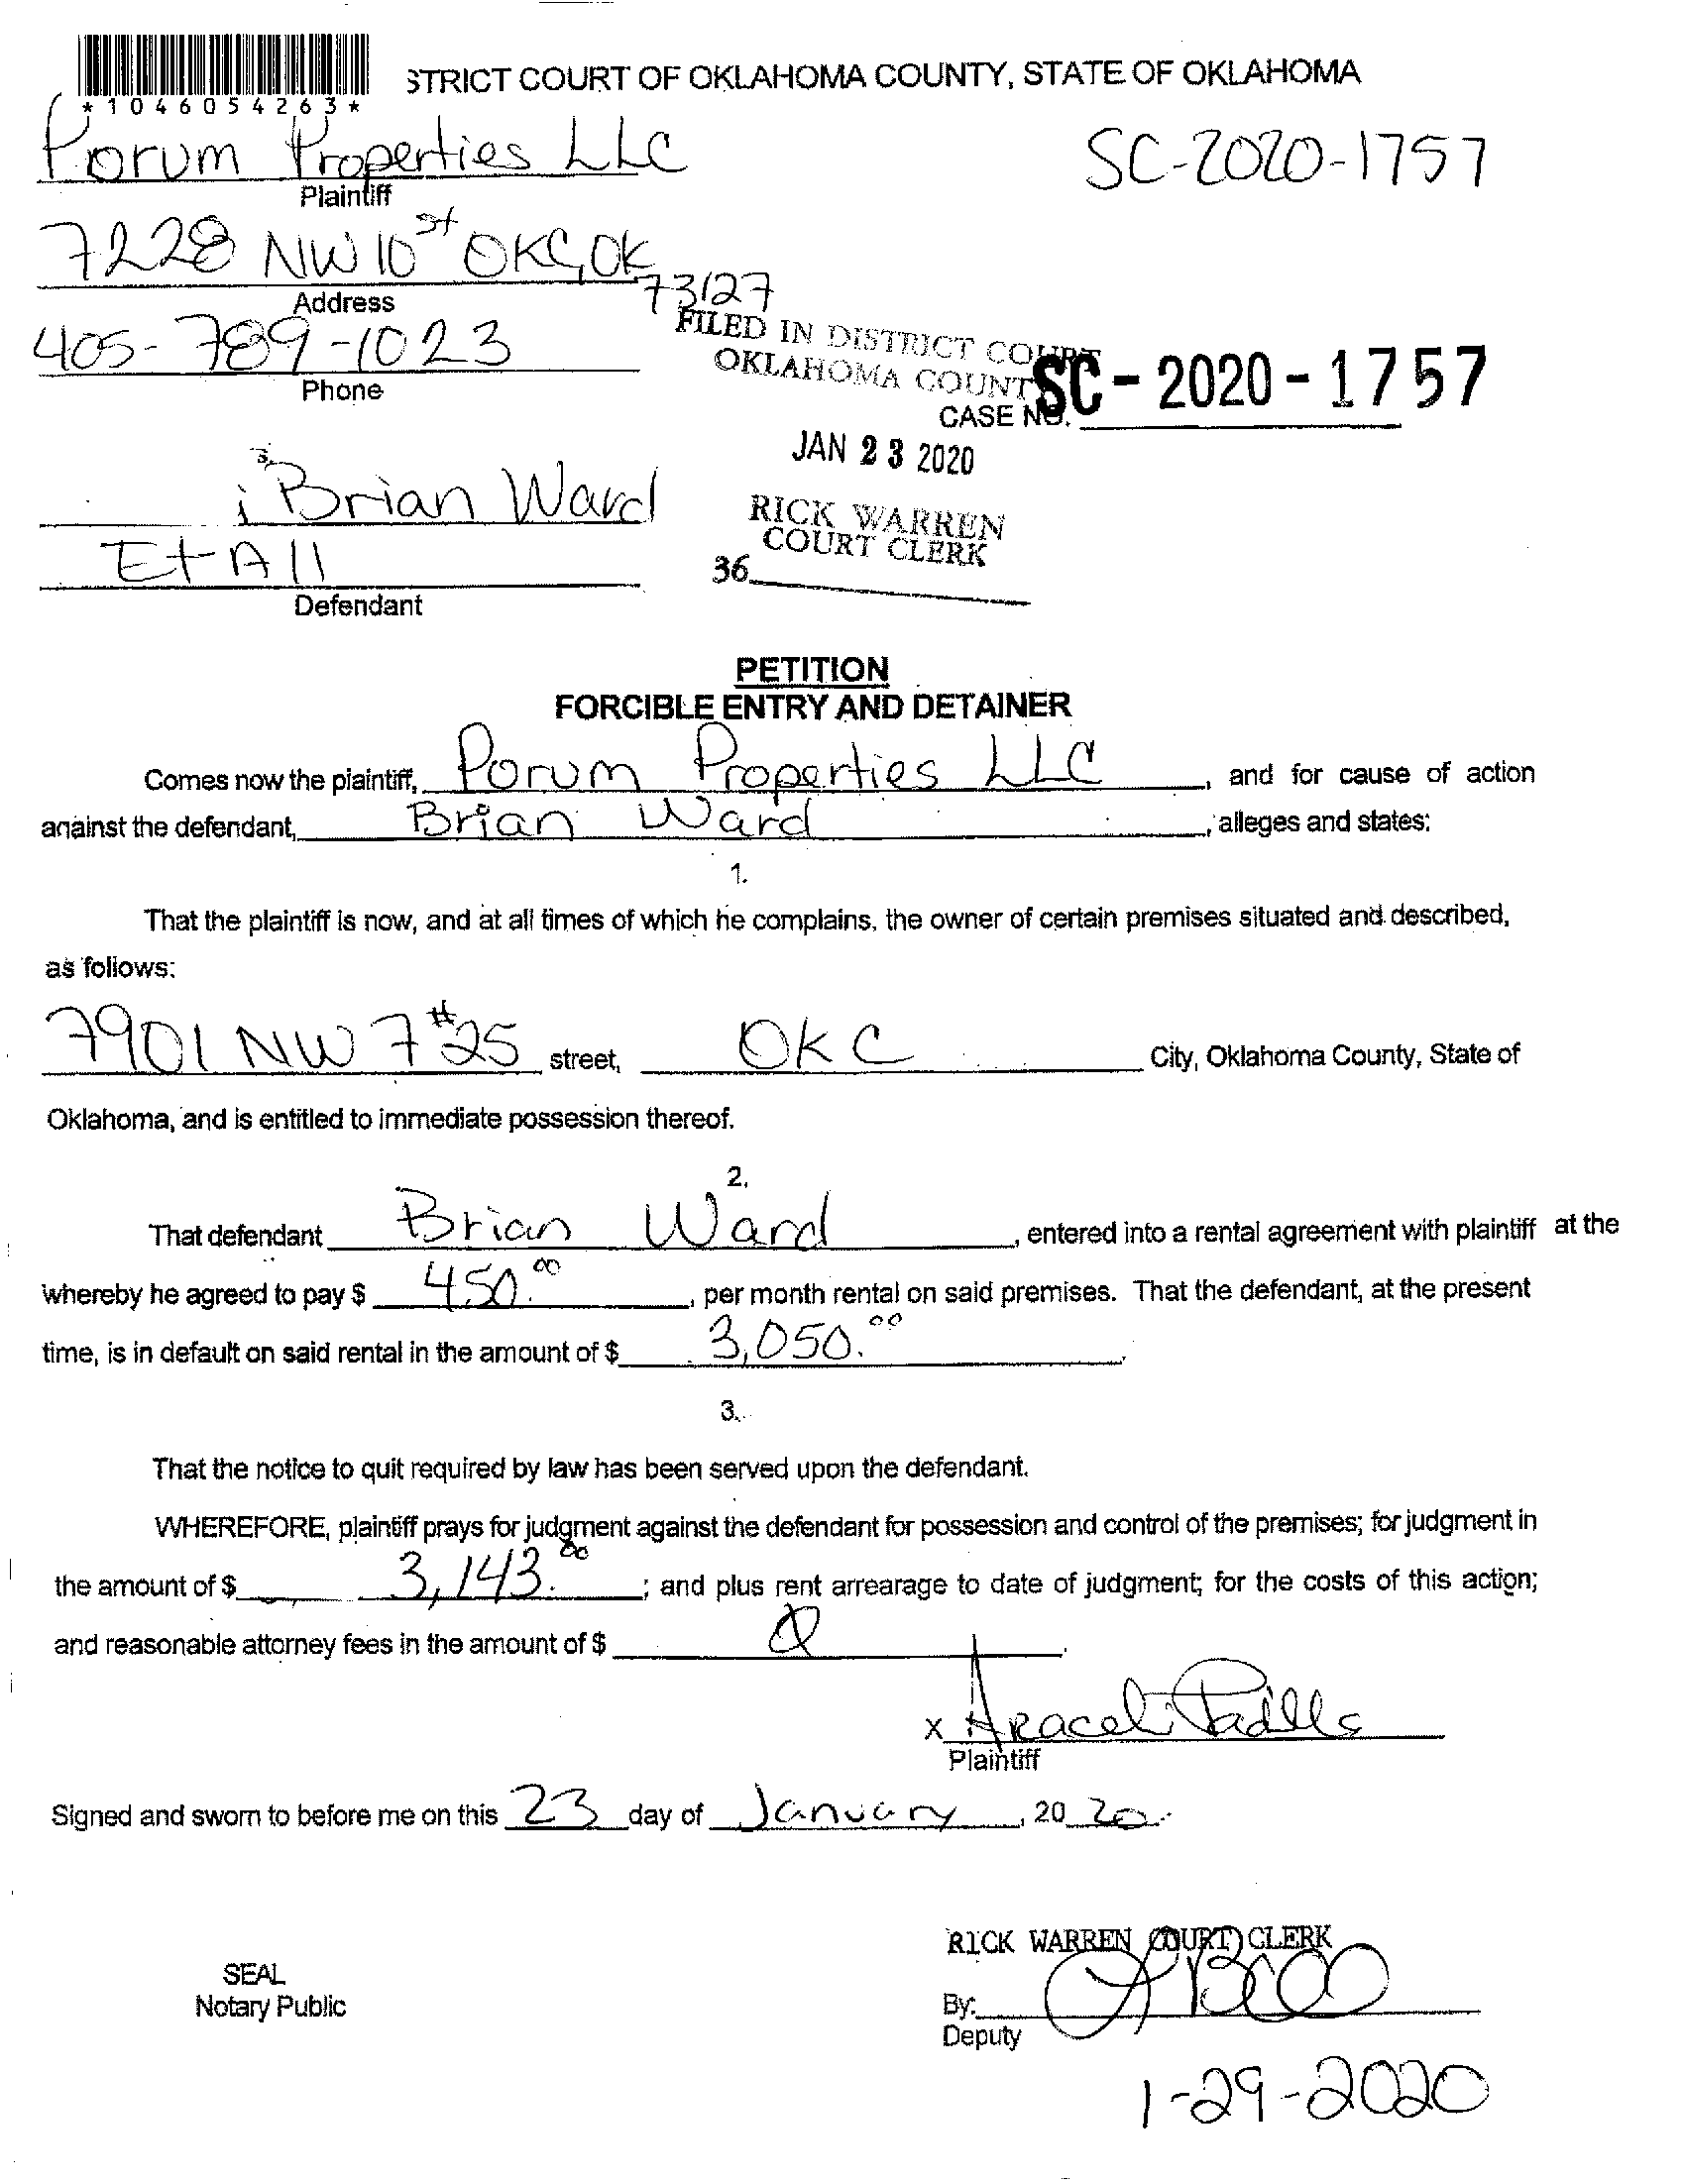 STRICT COURT OF OKLAHOMA COUNTY, STATE OF OKLAHOMA
*1046054263*
Porum Properties LLC
SC-2020-1757
Plaintiff
7228 NW 10 st OKC, OK
73127
Address
405-789-1023
Phone
FILED IN DISTRICT COURT
OKLAHOMA COUNT
CASE NO. SC-2020-1757
JAN 23 2020
Brian Ward
RICK WARREN
COURT CLERK
Et All
36
Defendant
PETITION
FORCIBLE ENTRY AND DETAINER
Comes now the plaintiff, Porum Properties LLC, and for cause of action
against the defendant, Brian Ward, alleges and states:
1.
That the plaintiff is now, and at all times of which he complains, the owner of certain premises situated and described,
as follows:
7901 NW 7 #25 street, OKC City, Oklahoma County, State of
Oklahoma, and is entitled to immediate possession thereof.
2.
That defendant Brian Ward, entered into a rental agreement with plaintiff at the
whereby he agreed to pay $ 450.00, per month rental on said premises. That the defendant, at the present
time, is in default on said rental in the amount of $ 3,050.00.
3.
That the notice to quit required by law has been served upon the defendant.
WHEREFORE, plaintiff prays for judgment against the defendant for possession and control of the premises; for judgment in
the amount of $ 3,143.00; and plus rent arrearage to date of judgment; for the costs of this action;
and reasonable attorney fees in the amount of $
x Araceli Padilla
Plaintiff
Signed and sworn to before me on this 23 day of January, 20 20.
RICK WARREN COURT CLERK
SEAL
Notary Public
By:
Deputy
1-29-2020